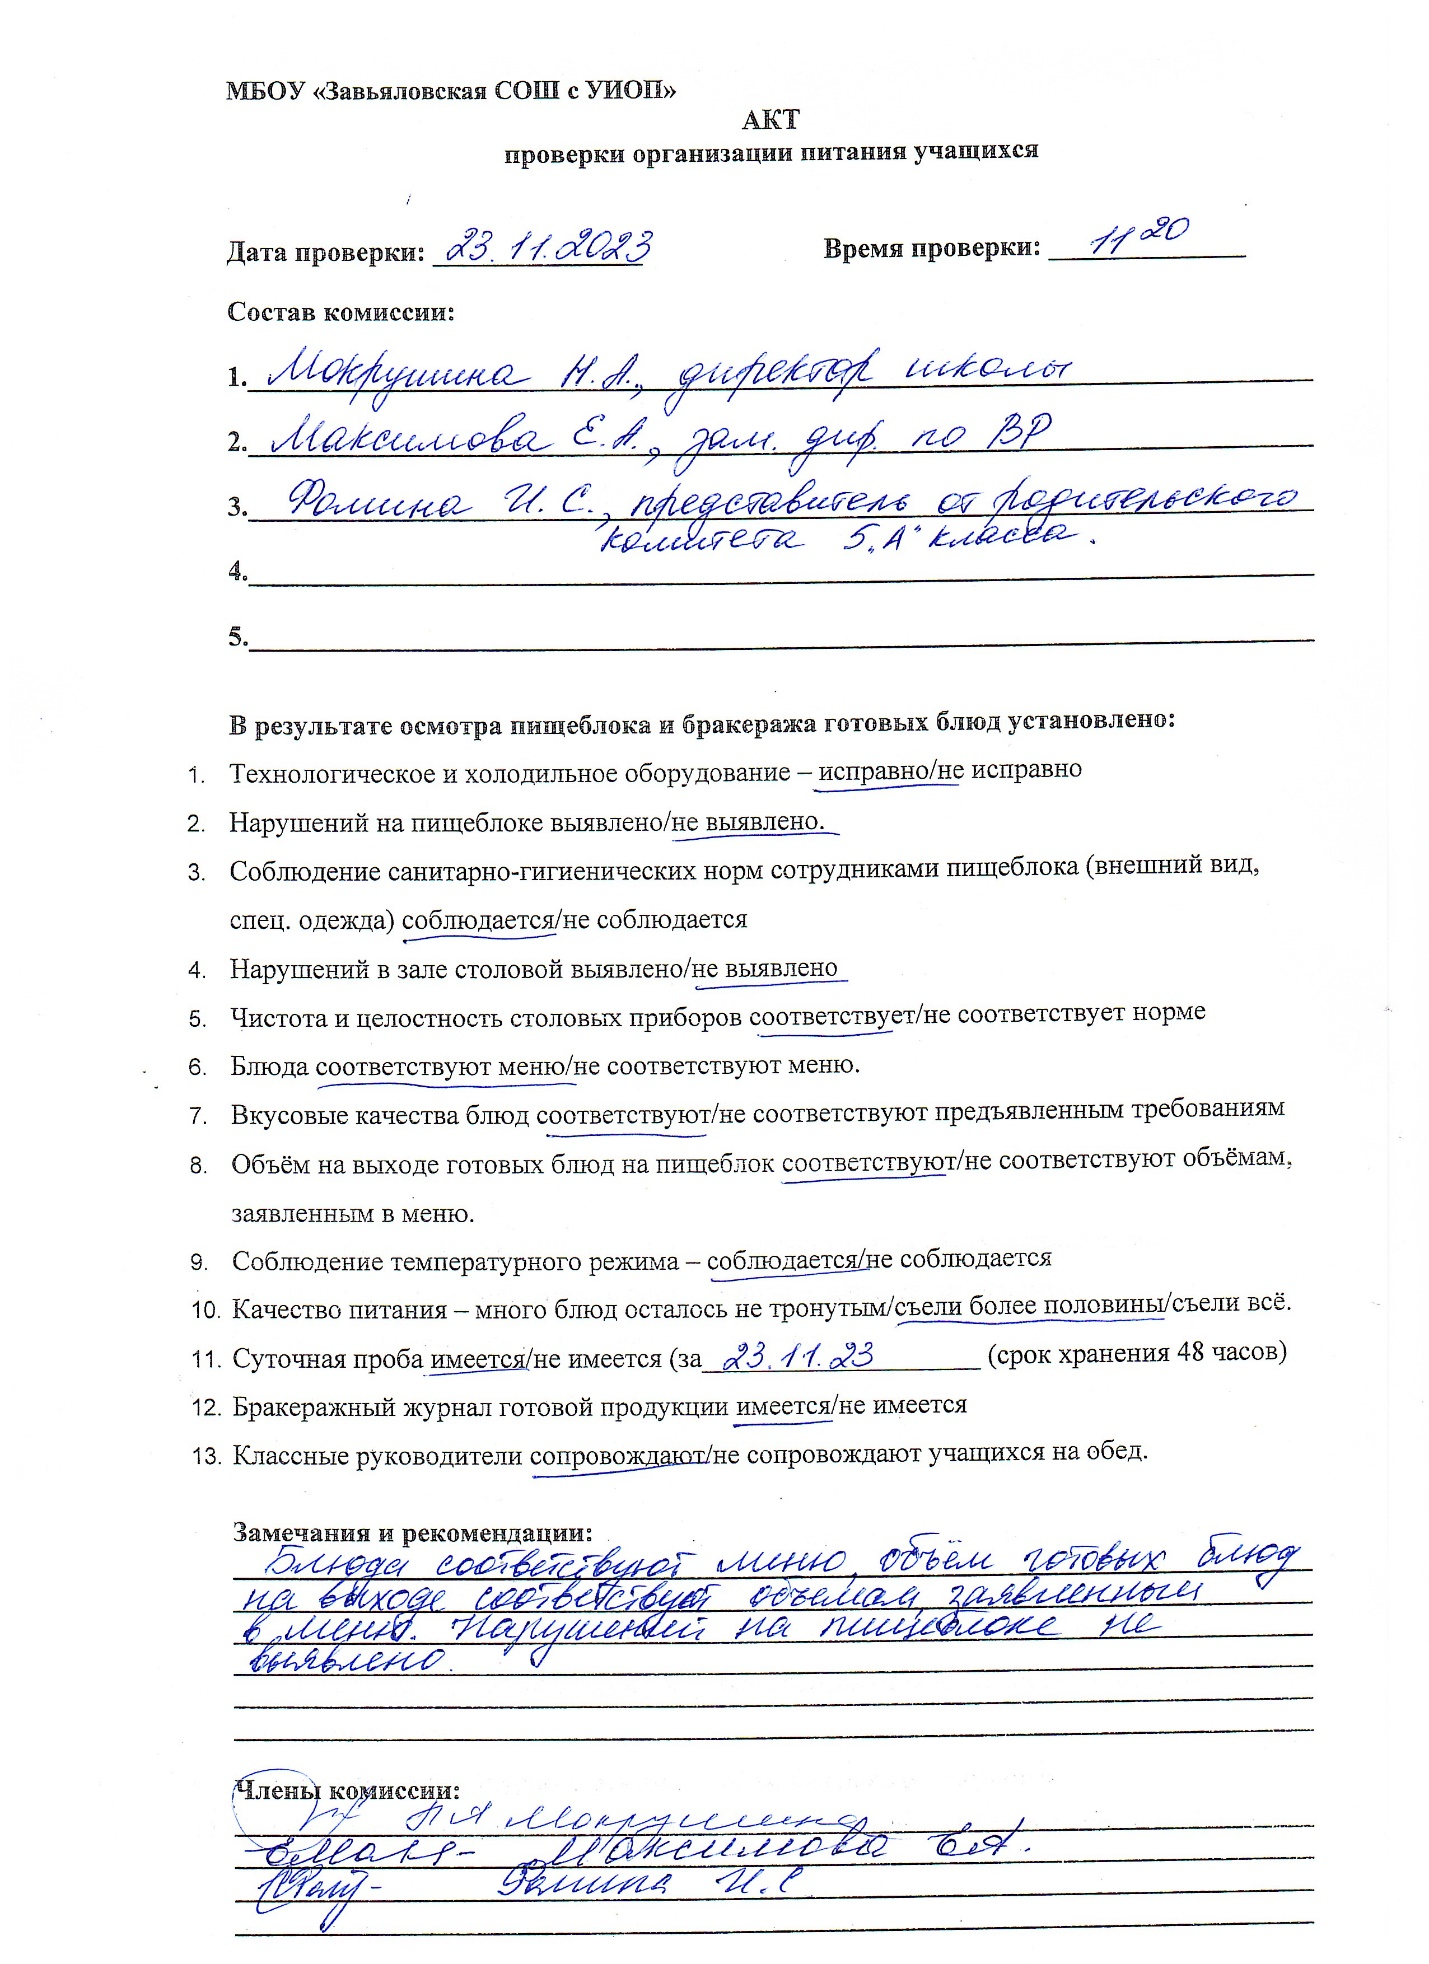 МБОУ «Завьяловская СОШ с УИОП»
АКТ
проверки организации питания учащихся
Дата проверки: 23.11.2023 Время проверки: 11 20
Состав комиссии:
1. Мокрушина Н.А., директор школы
2. Максимова Е.А., зам. дир. по ВР
3. Фомина И.С., представитель от родительского
комитета 5 „А" класса.
4.
5.
В результате осмотра пищеблока и бракеража готовых блюд установлено:
1. Технологическое и холодильное оборудование – исправно/не исправно
2. Нарушений на пищеблоке выявлено/не выявлено.
3. Соблюдение санитарно-гигиенических норм сотрудниками пищеблока (внешний вид,
спец. одежда) соблюдается/не соблюдается
4. Нарушений в зале столовой выявлено/не выявлено
5. Чистота и целостность столовых приборов соответствует/не соответствует норме
6. Блюда соответствуют меню/не соответствуют меню.
7. Вкусовые качества блюд соответствуют/не соответствуют предъявленным требованиям
8. Объём на выходе готовых блюд на пищеблок соответствуют/не соответствуют объёмам,
заявленным в меню.
9. Соблюдение температурного режима – соблюдается/не соблюдается
10. Качество питания – много блюд осталось не тронутым/съели более половины/съели всё.
11. Суточная проба имеется/не имеется (за 23.11.23 (срок хранения 48 часов)
12. Бракеражный журнал готовой продукции имеется/не имеется
13. Классные руководители сопровождают/не сопровождают учащихся на обед.
Замечания и рекомендации:
Блюда соответствуют меню, объём готовых блюд
на выходе соответствует объемам, заявленным
в меню. Нарушений на пищеблоке не
выявлено.
Члены комиссии:
НА Мокрушина
Максимова Е.А.
Фомина И.С